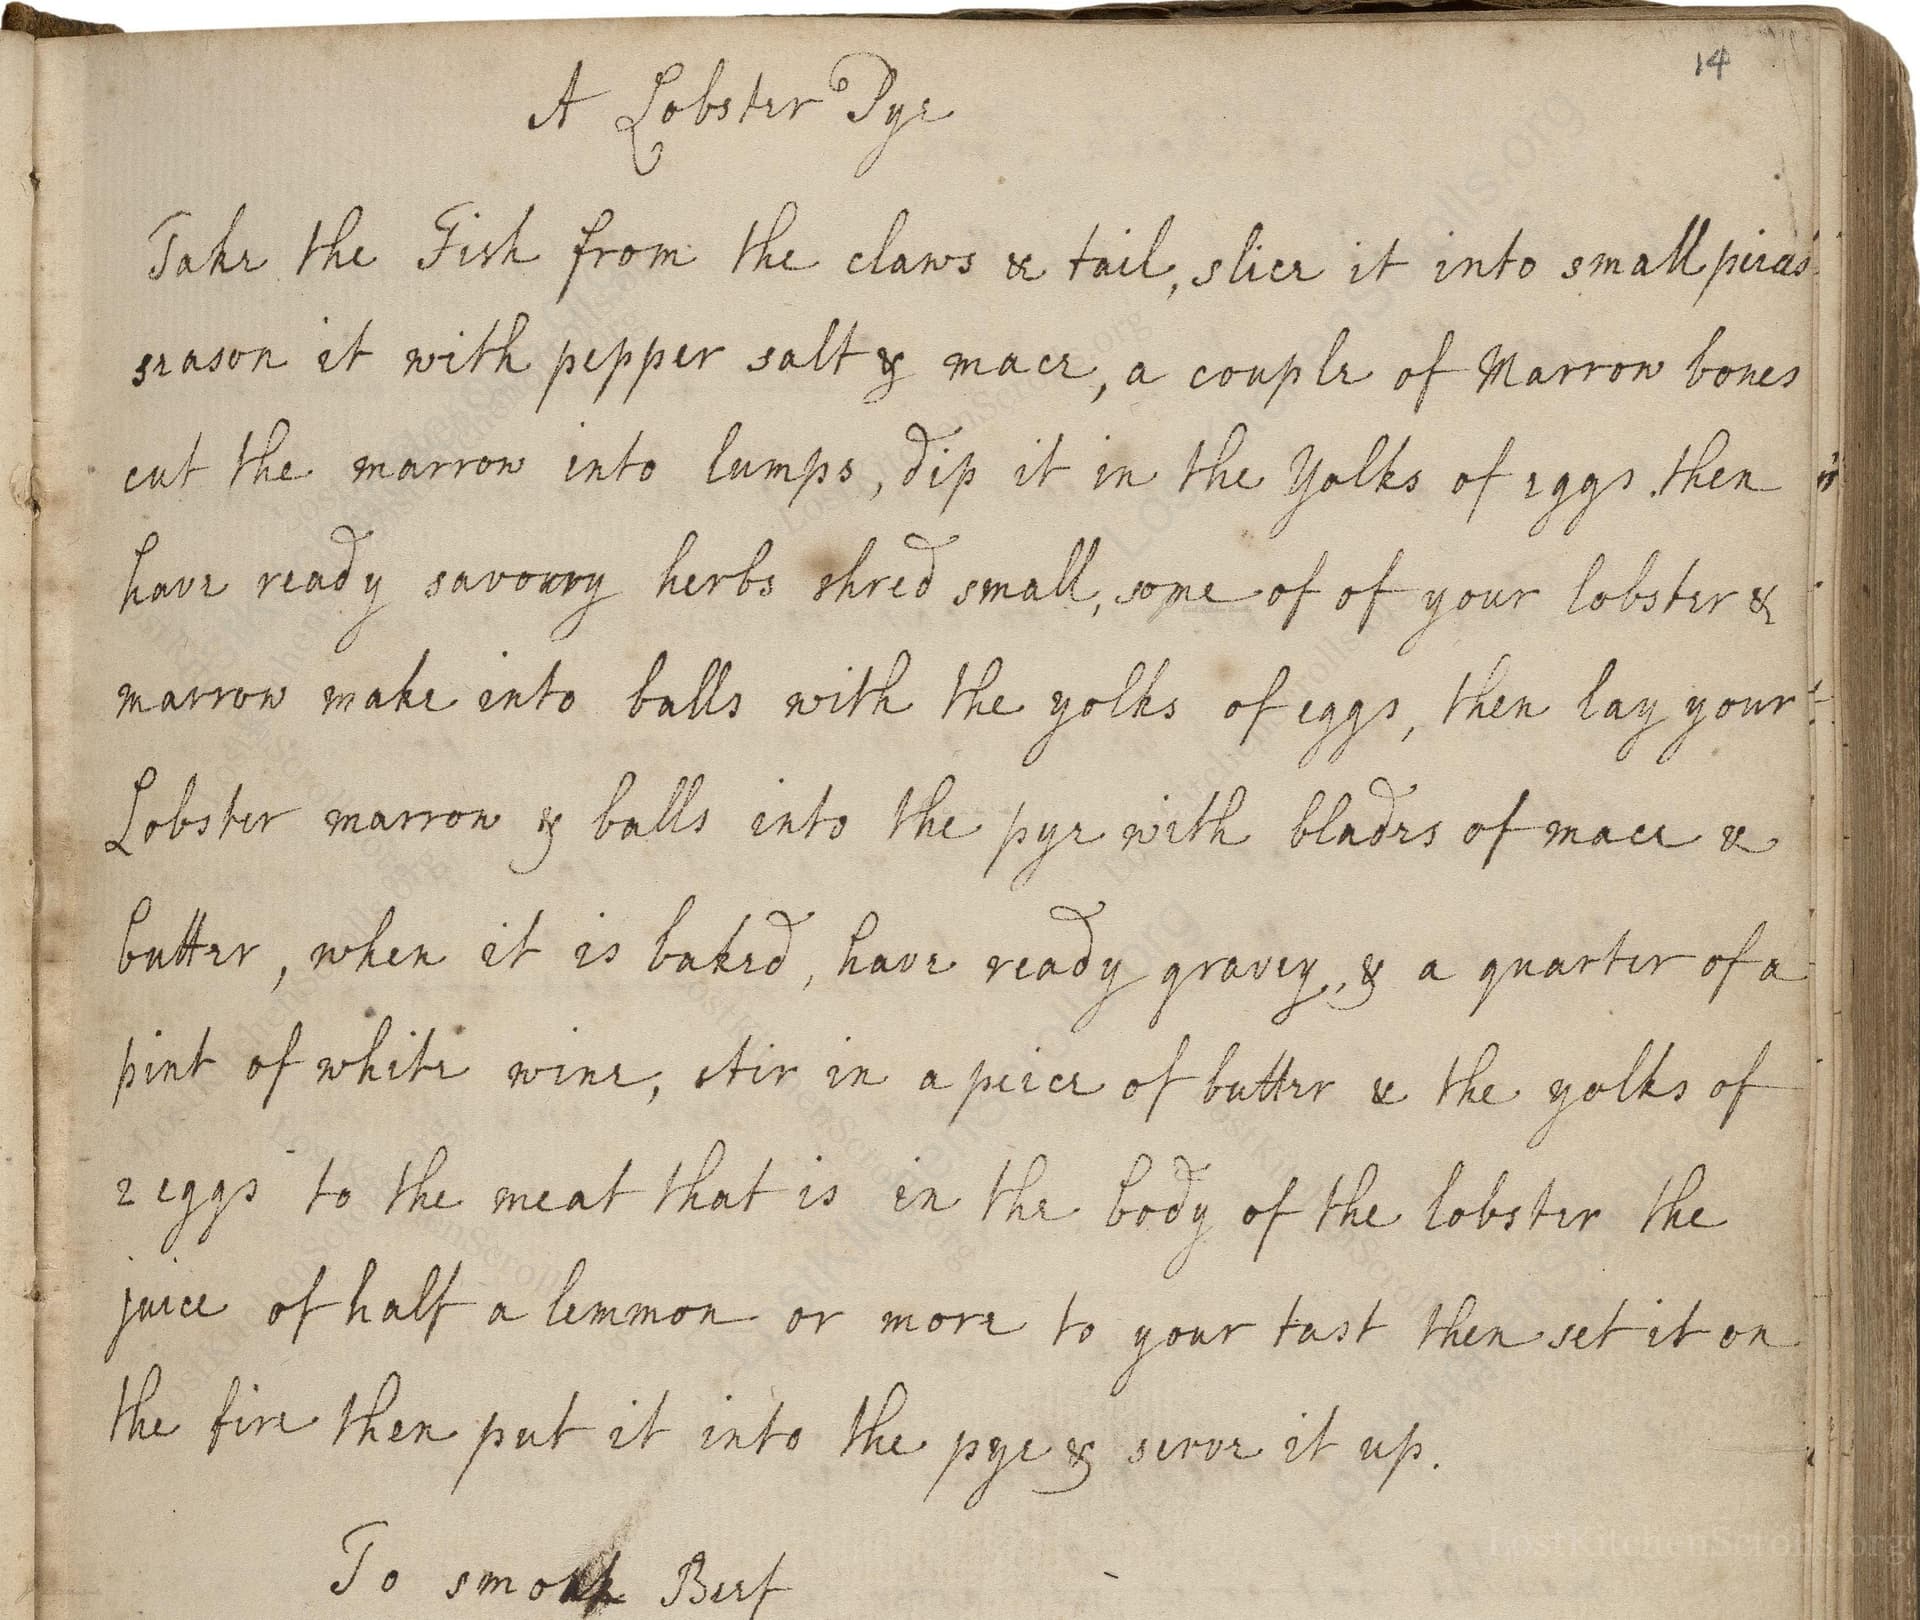 14
A Lobster Pye
Take the Fish from the claws & tail, slice it into small peices
season it with pepper salt & mace, a couple of Marrow bones
cut the marrow into lumps, dip it in the Yolks of eggs. then
have ready savoury herbs shred small, some of of your lobster &
marrow make into balls with the yolks of eggs, then lay your
Lobster marrow & balls into the pye with blades of mace &
butter, when it is baked, have ready gravey, & a quarter of a
pint of white wine, stir in a peice of butter & the yolks of
2 eggs to the meat that is in the body of the lobster the
juice of half a lemmon or more to your tast then set it on
the fire then put it into the pye & serve it up.
To smoak Beef
LostKitchenScrolls.org